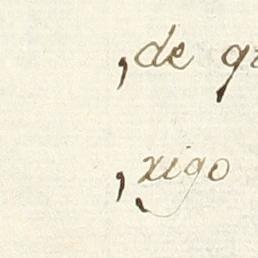 ,de
,xigo